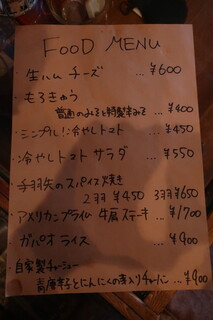 FOOD MENU
・生ハムチーズ ... ¥600
・もろきゅう
... ¥400
・シンプル!冷やしトマト ... ¥450
・冷やしトマトサラダ ... ¥550
・手羽先のスパイス焼き
2羽 ¥450 3羽 ¥650
・アメリカンプライム 牛肩ステーキ ... ¥1700
・ガパオライス ... ¥900
・自家製チャーシュー
青唐辛子とにんにくの芽入りチャーハン ... ¥900